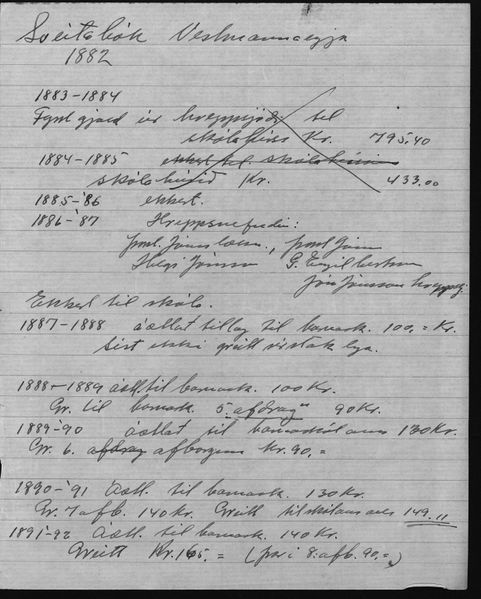 Sveitabók Vestmannaeyja
1882
1883-1884
Fyrst gjald úr hreppssjóði til
skólahúss Kr. 795.40
1884-1885 ekkert til skólahússins
skólahúsið Kr. 433.00
1885-'86 ekkert.
1886-'87 Hreppsnefndin:
þorst. Jónsson læknir,
Helgi Jónsson G. Engilbertsson
Jón Jónsson hreppstj.
Ekkert til skóla.
1887-1888 áætlat tillag til barnask. 100.= Kr.
Sést ekki greitt
1888-1889 áætl. til barnask. 100 Kr.
Gr. til barnask. 5. "afdrag" 90 Kr.
1889-'90 áætlat til barnaskólans 130 Kr.
Gr. 6. afdrag afborgun Kr. 90.=
1890-'91 Áætl. til barnask. 130 Kr.
Gr. 7 afb. 140 Kr. Greitt til skólans alls 149.11
1891-92 Áætl. til barnask. 140 Kr.
Greitt Kr. 165.= (þar í 8. afb. 90.=)